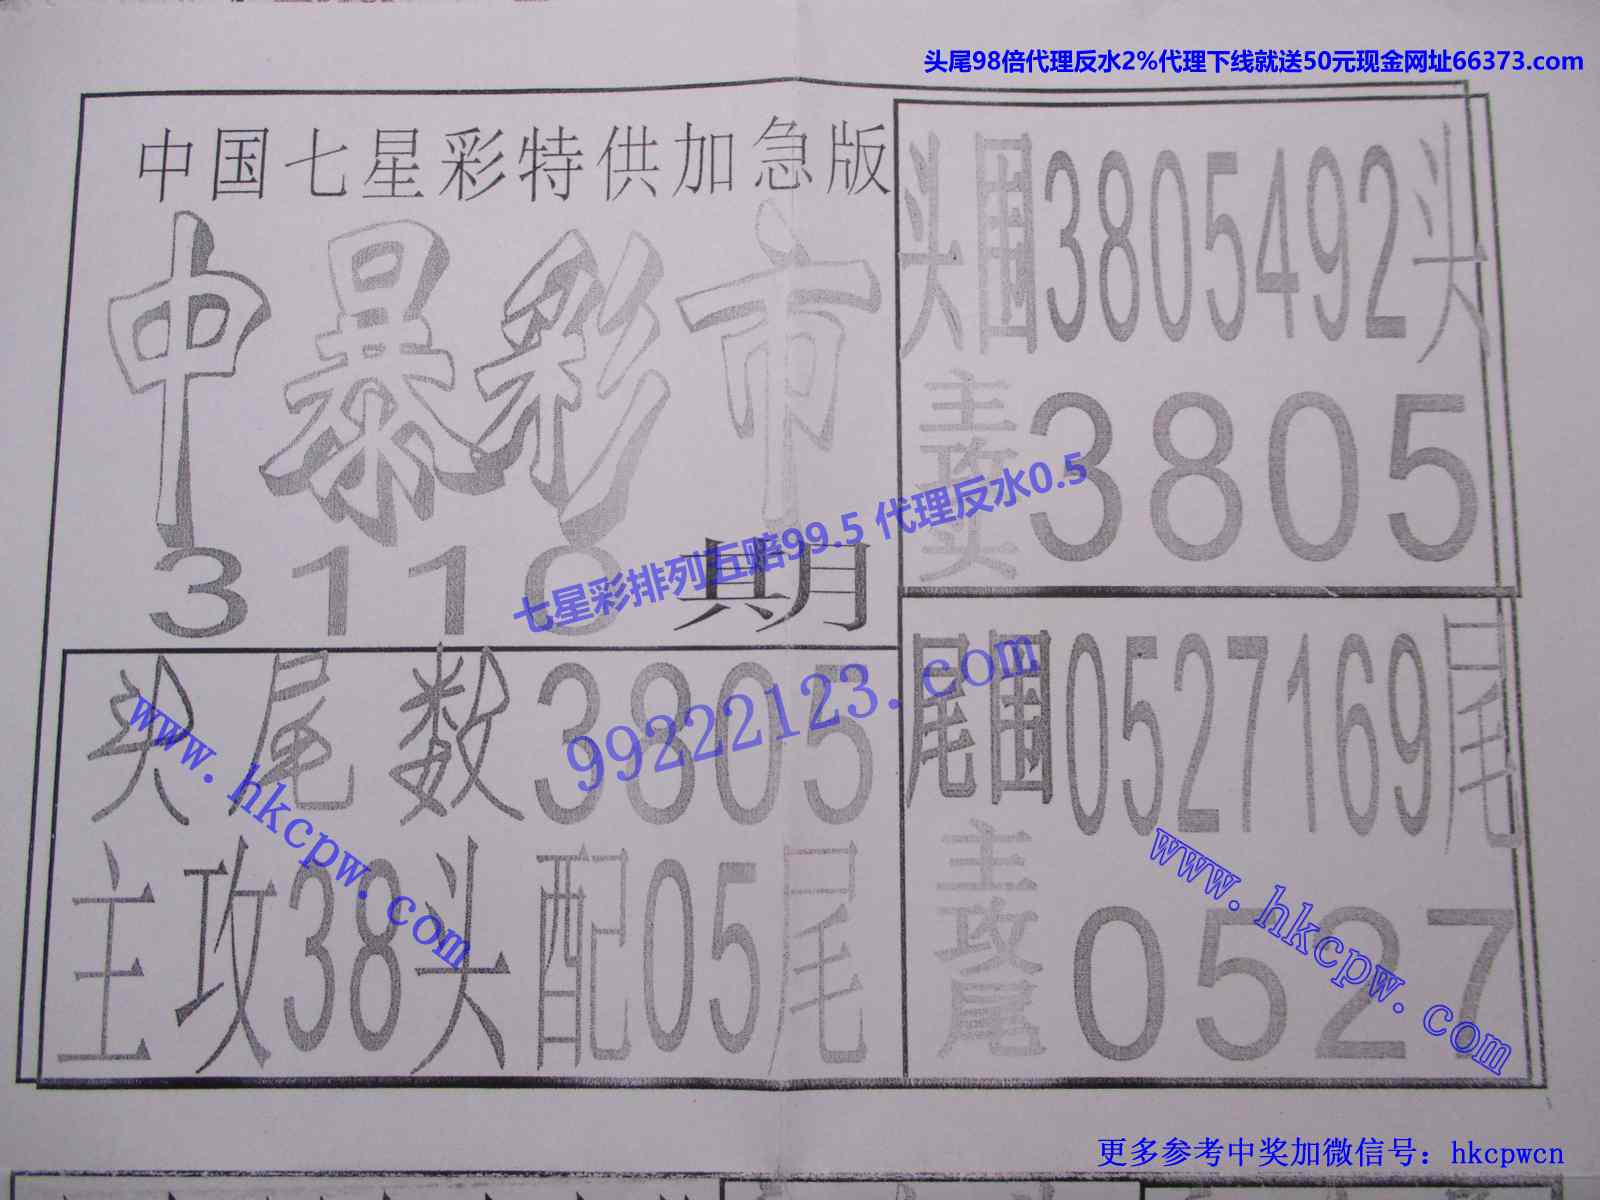 头尾98倍代理反水2%代理下线就送50元现金网址66373.com
中国七星彩特供加急版
中暴彩市
3110期
头围3805492头
主攻头3805
七星彩排列五赔99.5 代理反水0.5
99222123.com
头尾数3805
主攻38头配05尾
www.hkcpw.com
尾围0527169尾
主攻尾0527
www.hkcpw.com
更多参考中奖加微信号：hkcpwcn